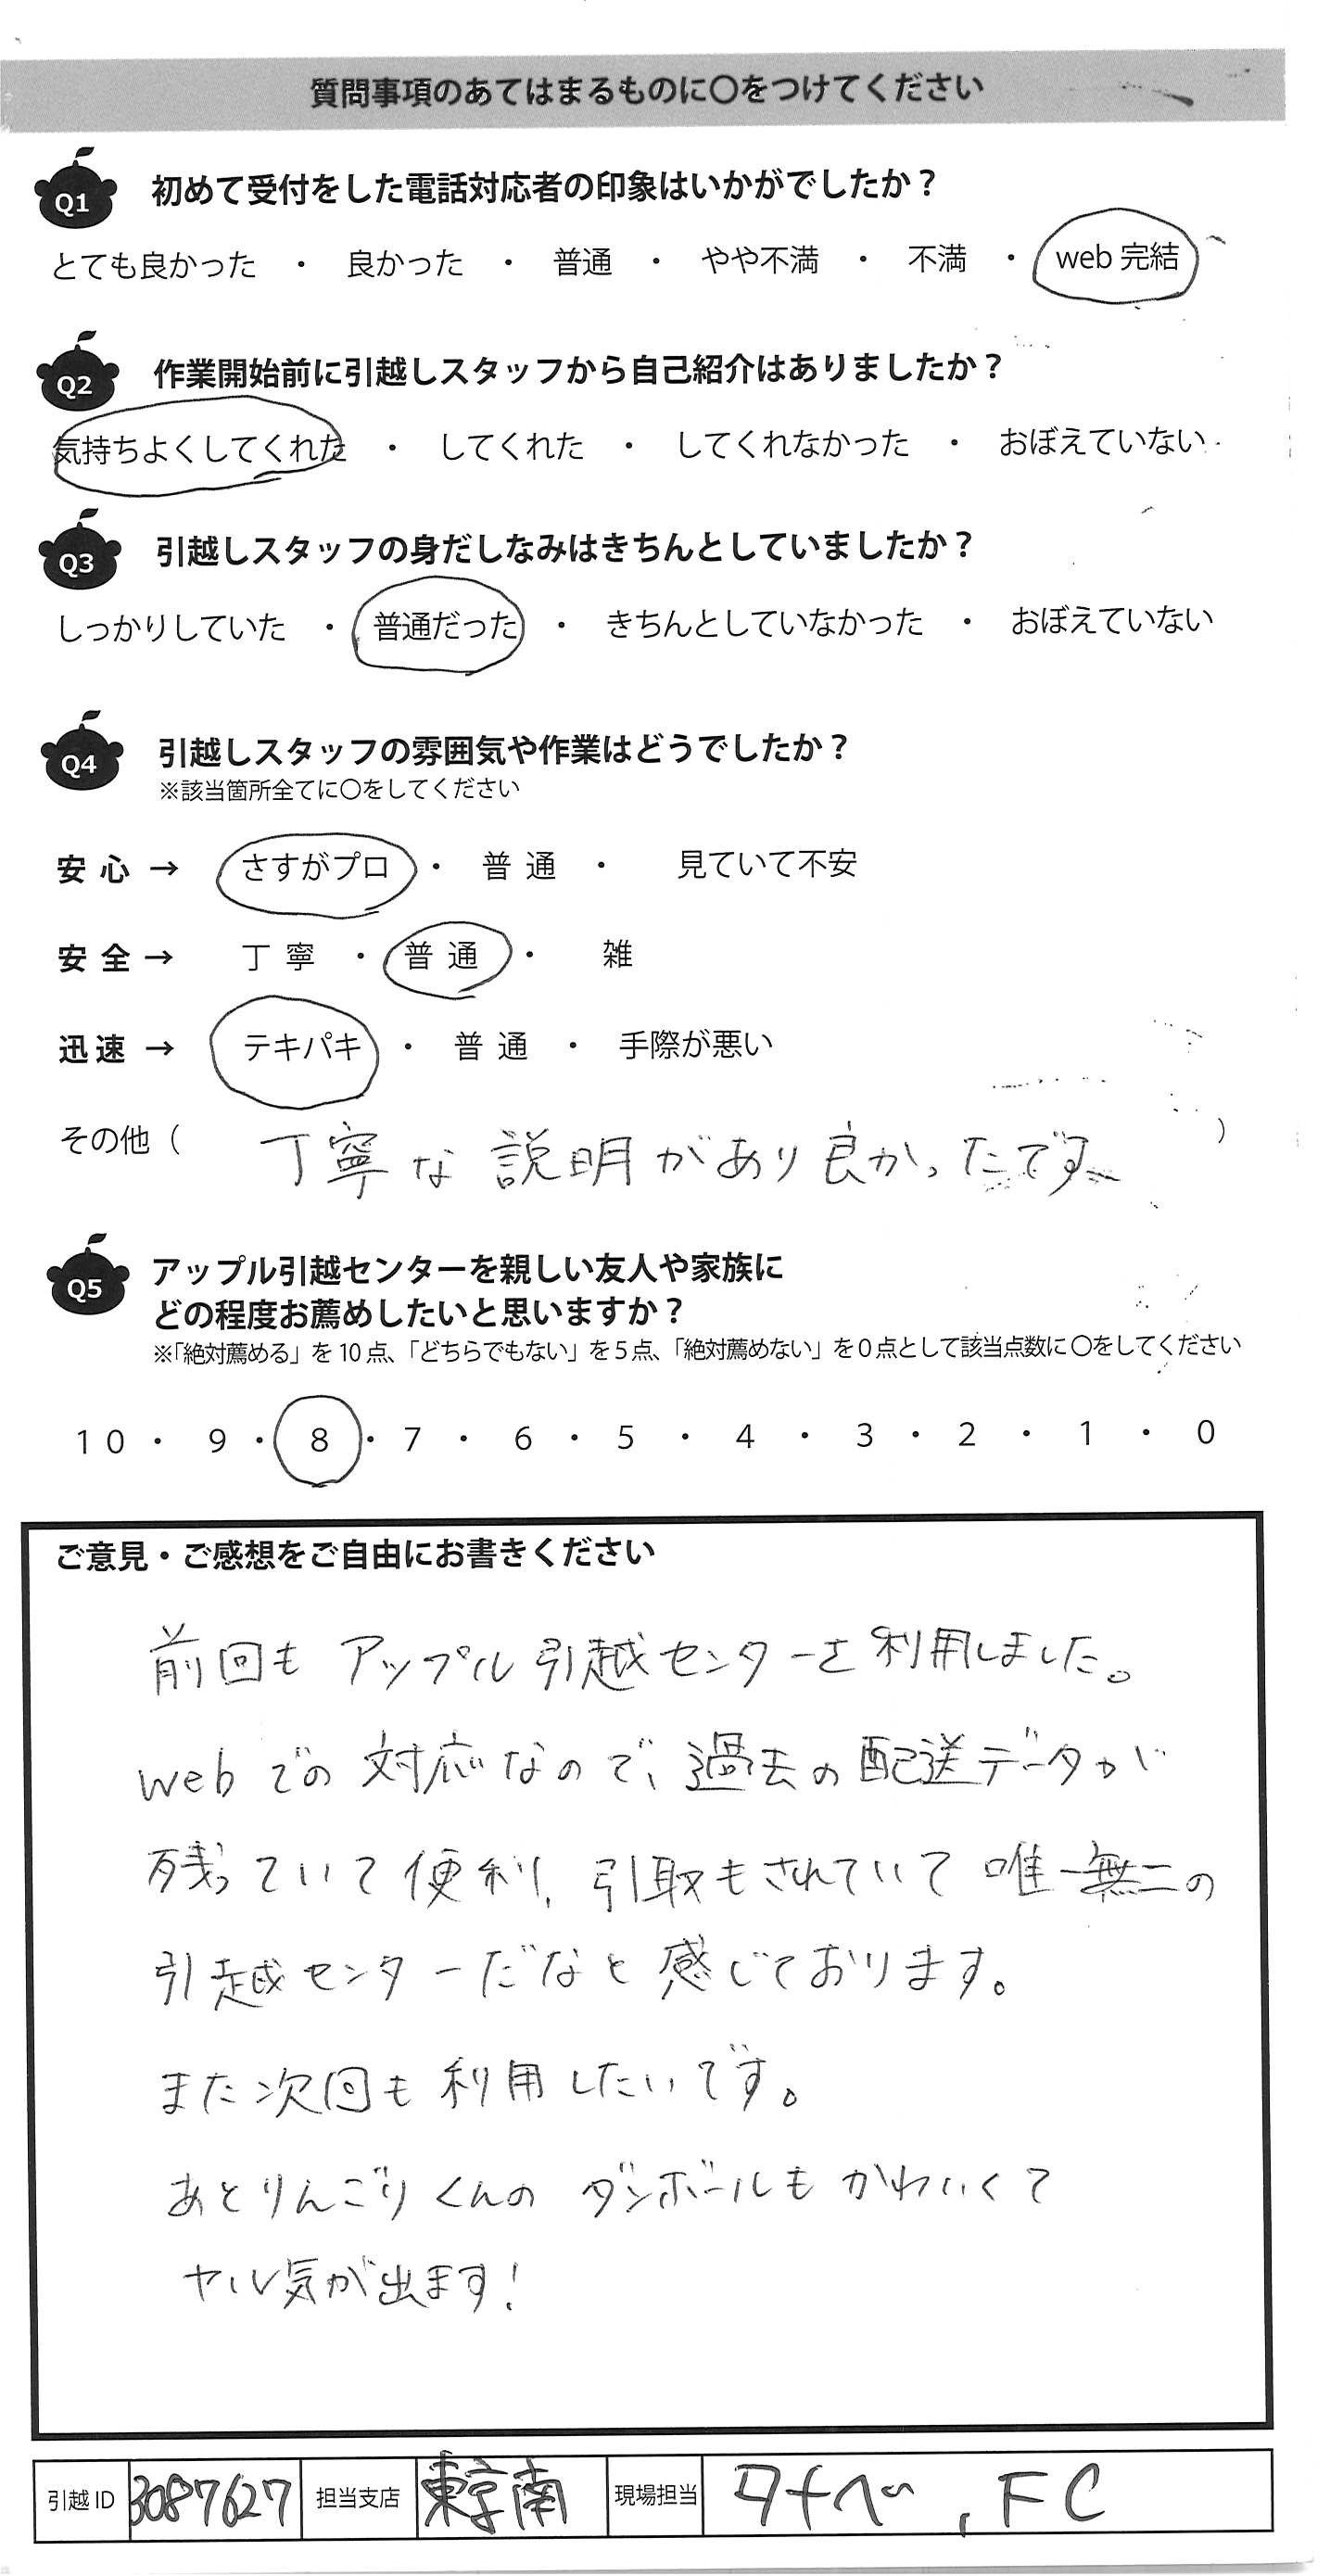 質問事項のあてはまるものに〇をつけてください
Q1 初めて受付をした電話対応者の印象はいかがでしたか？
とても良かった ・ 良かった ・ 普通 ・ やや不満 ・ 不満 ・ web 完結
Q2 作業開始前に引越しスタッフから自己紹介はありましたか？
気持ちよくしてくれた ・ してくれた ・ してくれなかった ・ おぼえていない
Q3 引越しスタッフの身だしなみはきちんとしていましたか？
しっかりしていた ・ 普通だった ・ きちんとしていなかった ・ おぼえていない
Q4 引越しスタッフの雰囲気や作業はどうでしたか？
※該当箇所全てに〇をしてください
安心 → さすがプロ ・ 普通 ・ 見ていて不安
安全 → 丁寧 ・ 普通 ・ 雑
迅速 → テキパキ ・ 普通 ・ 手際が悪い
その他（ 丁寧な説明があり良かったです。 ）
Q5 アップル引越センターを親しい友人や家族に
どの程度お薦めしたいと思いますか？
※「絶対薦める」を10点、「どちらでもない」を5点、「絶対薦めない」を0点として該当点数に〇をしてください
10 ・ 9 ・ 8 ・ 7 ・ 6 ・ 5 ・ 4 ・ 3 ・ 2 ・ 1 ・ 0
ご意見・ご感想をご自由にお書きください
前回もアップル引越センターを利用しました。
webでの対応なので、過去の配送データが
残っていて便利、引取もされていて唯一無二の
引越センターだなと感じております。
また次回も利用したいです。
あとりんごりくんのダンボールもかわいくて
ヤル気が出ます!
引越ID 3087627 担当支店 東京南 現場担当 タナベ、FC